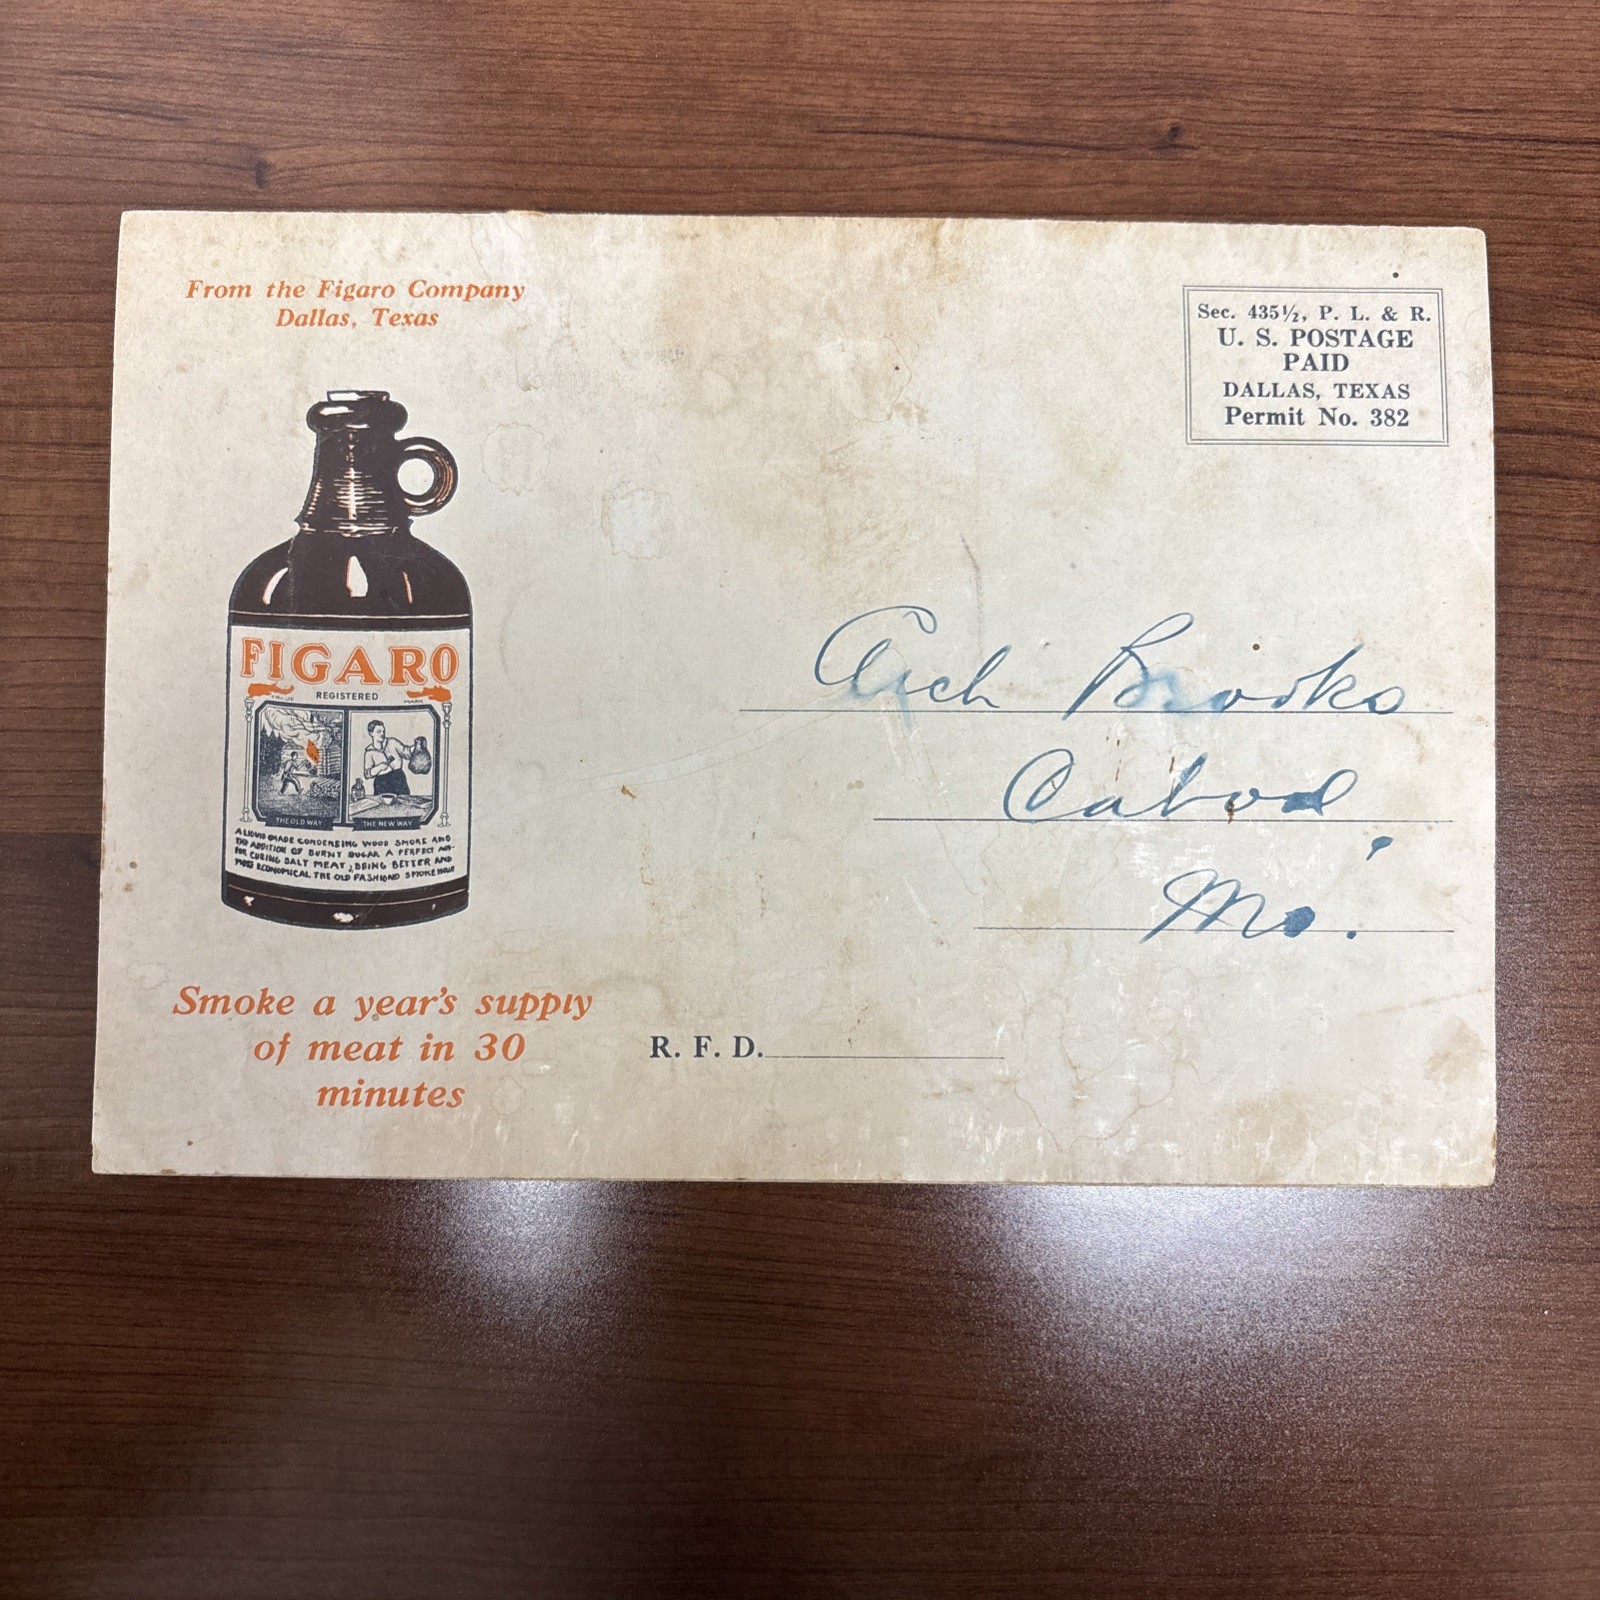 From the Figaro Company
Dallas, Texas
Sec. 435½, P. L. & R.
U. S. POSTAGE
PAID
DALLAS, TEXAS
Permit No. 382
FIGARO
TRADE REGISTERED MARK
THE OLD WAY THE NEW WAY
A LIQUID MADE CONDENSING WOOD SMOKE AND
THE ADDITION OF BURNT SUGAR A PERFECT
FOR CURING SALT MEAT, BEING BETTER AND
MORE ECONOMICAL THE OLD FASHIOND SMOKE HOUSE
Arch Brooks
Cabool,
Mo.
Smoke a year's supply
of meat in 30
minutes
R. F. D.